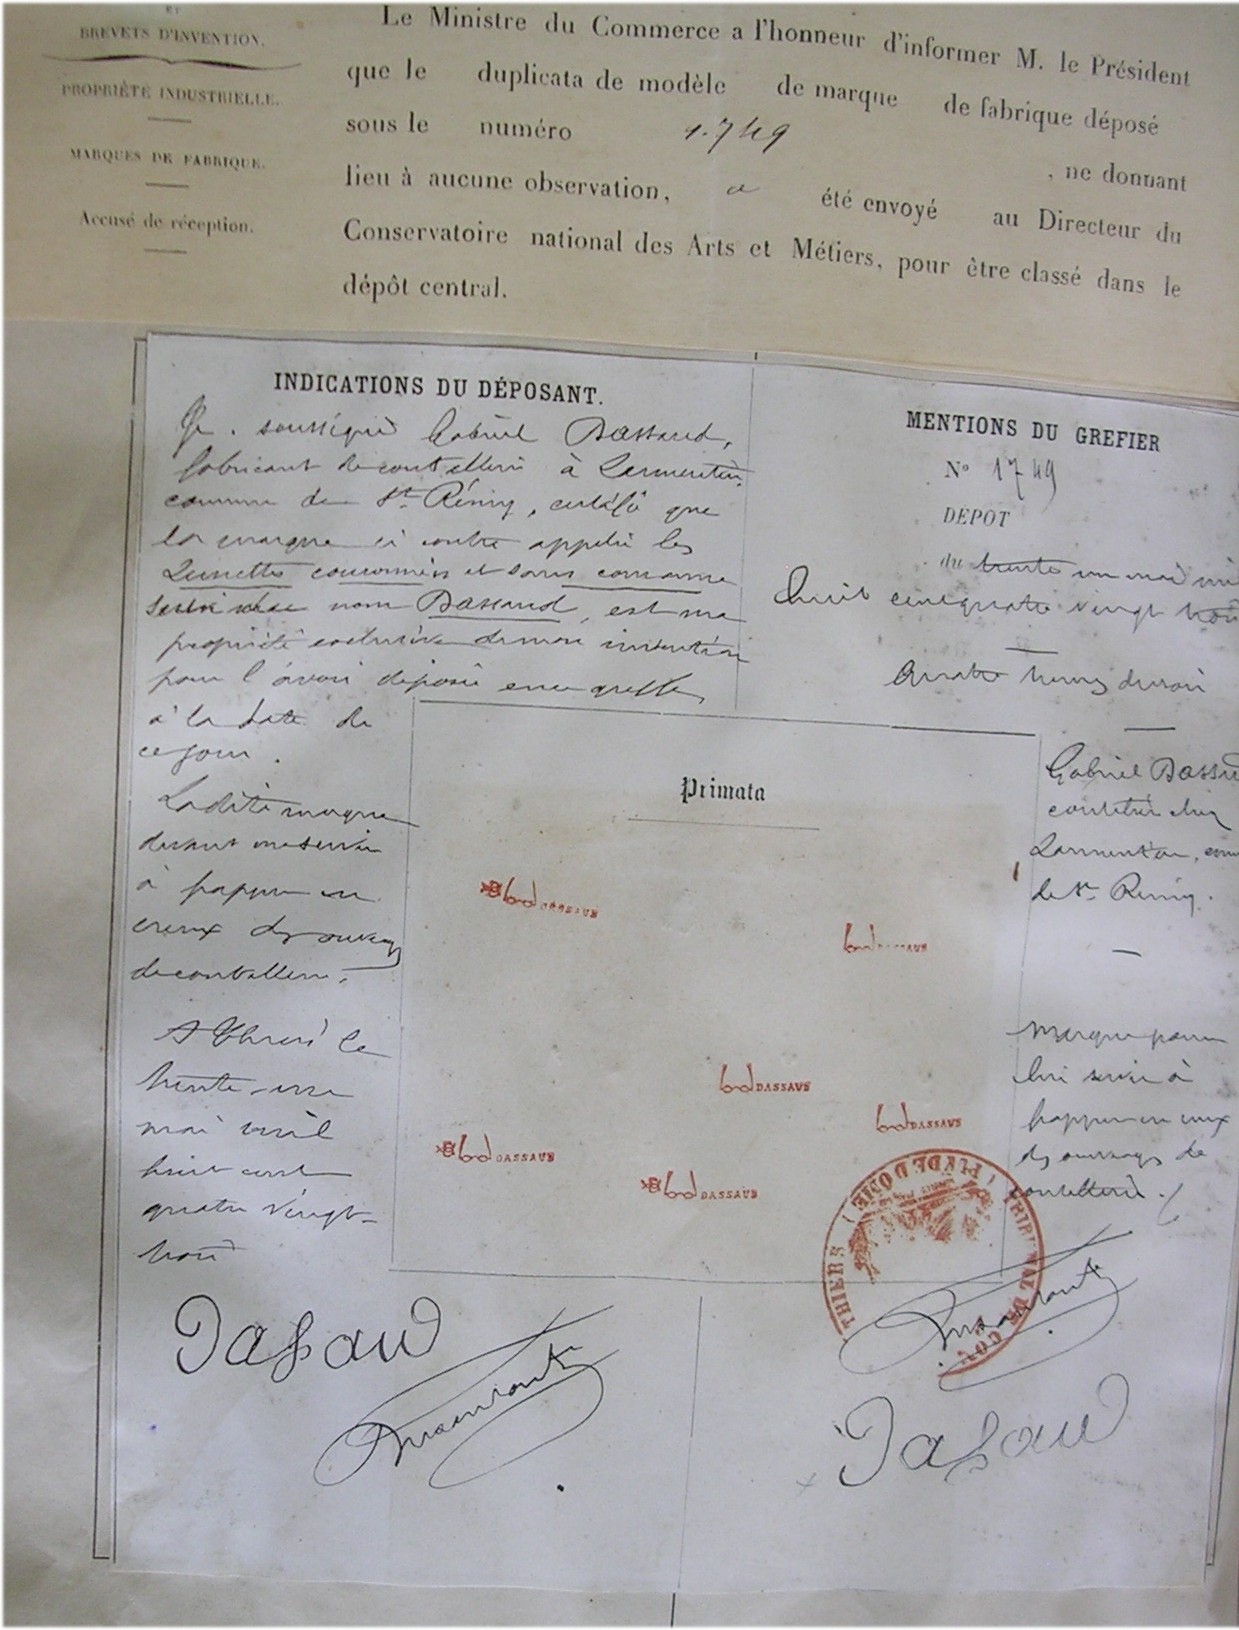 ET
BREVETS D'INVENTION.
PROPRIÉTÉ INDUSTRIELLE.
MARQUES DE FABRIQUE.
Accusé de réception.
Le Ministre du Commerce a l'honneur d'informer M. le Président
que le duplicata de modèle de marque de fabrique déposé
sous le numéro 1.749 , ne donnant
lieu à aucune observation, a été envoyé au Directeur du
Conservatoire national des Arts et Métiers, pour être classé dans le
dépôt central.
INDICATIONS DU DÉPOSANT.
Je soussigné Gabriel Dassaud,
fabricant de coutellerie à
commune de St Rémy, certifie que
la marque ci contre appelée les
Lunettes couronnées et sans couronne
nom Dassaud, est ma
propriété exclusive de mon invention
pour l'avoir déposée greffe
à la date de
ce jour.
La dite marque
devant me servir
à frapper en
creux des ouvrages
de coutellerie.
A Thiers le
trente-un
mai mil
huit cent
quatre vingt-
trois
MENTIONS DU GREFIER
N° 1749
DÉPOT
du trente un mai mil
huit cent quatre vingt trois
Quatre heures du soir
Gabriel Dassaud
coutelier chez
de St Remy.
Marque pour
lui servir à
frapper en creux
des ouvrages de
coutellerie.
Primata
DASSAUD
DASSAUD
DASSAUD
DASSAUD
DASSAUD
DASSAUD
THIERS (PUY DE DOME) TRIBUNAL DE CO
Dasaud
Dasaud